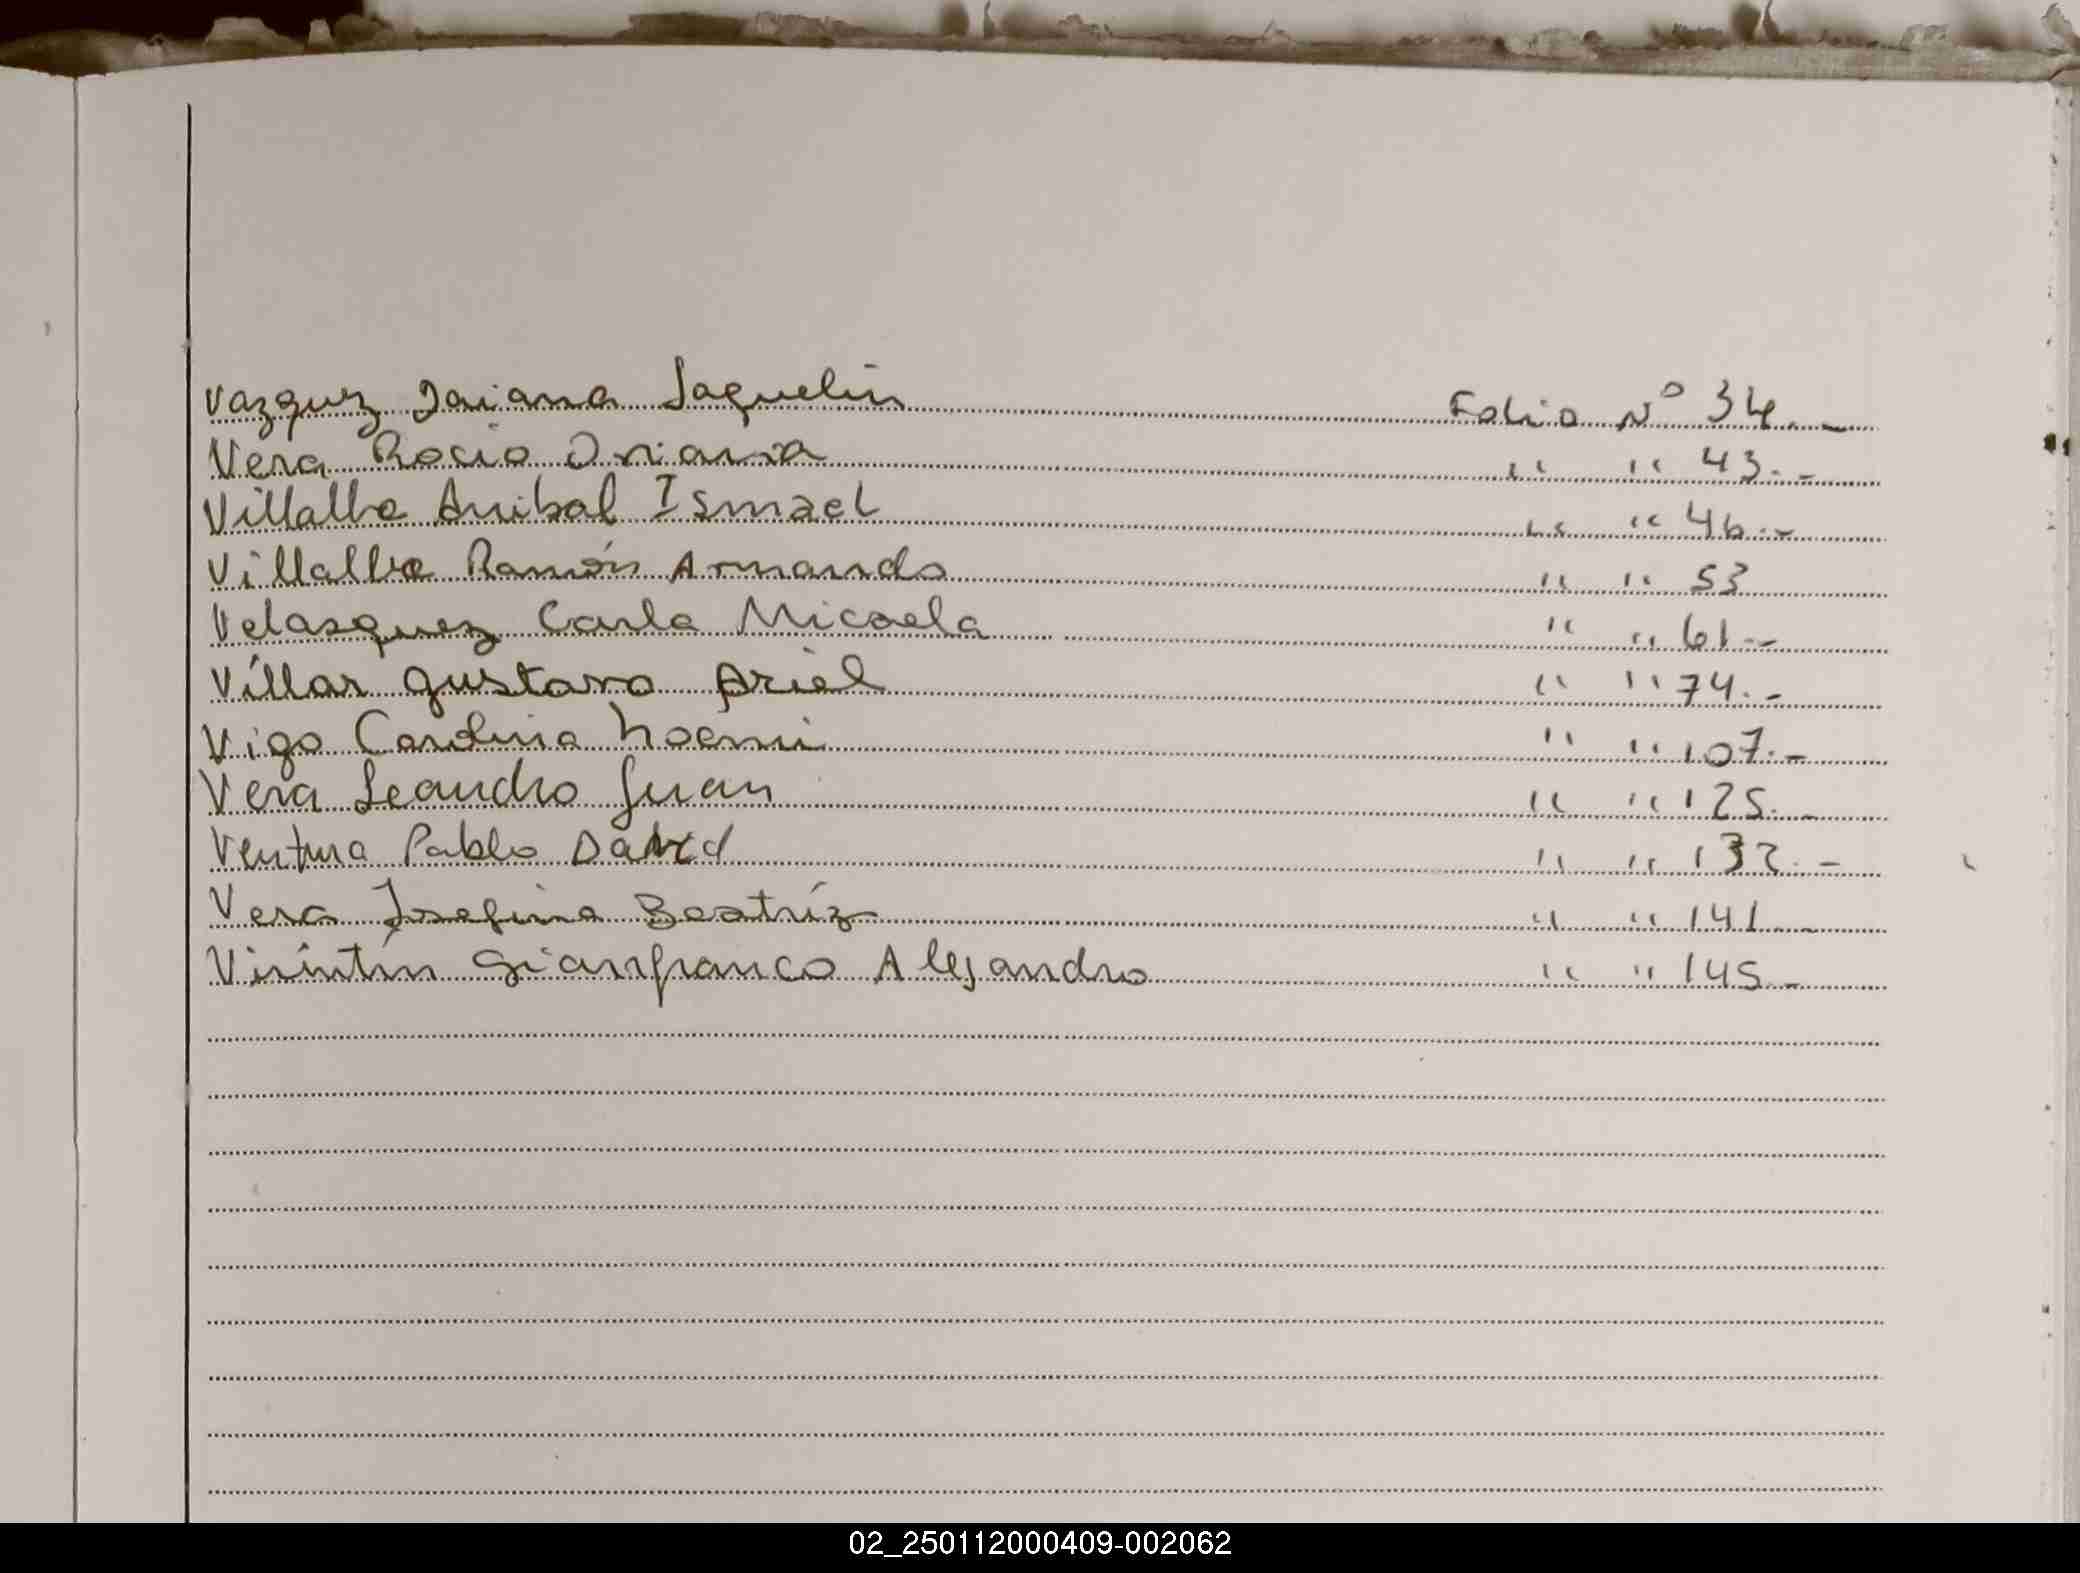 Vazquez Daiana Jaquelin Folio Nº 34.-
Vera Rocio Oriana " " 43.-
Villalba Anibal Ismael " " 46.-
Villalba Ramón Armando " " 53
Velasquez Carla Micaela " " 61.-
Villar Gustavo Ariel " " 74.-
Vigo Carolina Noemi " " 107.-
Vera Leandro Juan " " 125.-
Ventura Pablo David " " 132.-
Vera Josefina Beatríz " " 141.-
Visintín Gianfranco Alejandro " " 145.-
02_250112000409-002062